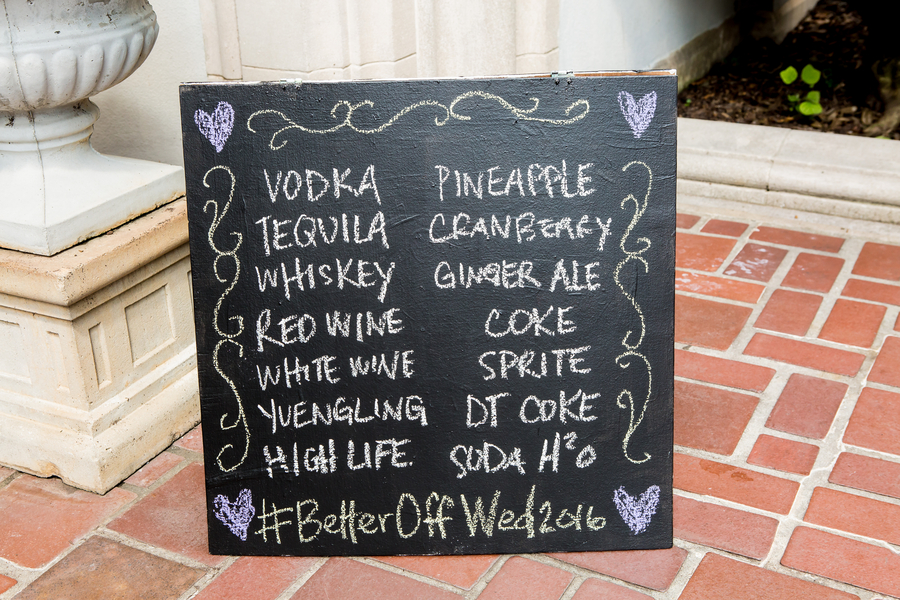 VODKA PINEAPPLE
TEQUILA CRANBERRY
WHISKEY GINGER ALE
RED WINE COKE
WHITE WINE SPRITE
YUENGLING DT COKE
HIGH LIFE SODA H²O
#BetterOffWed2016